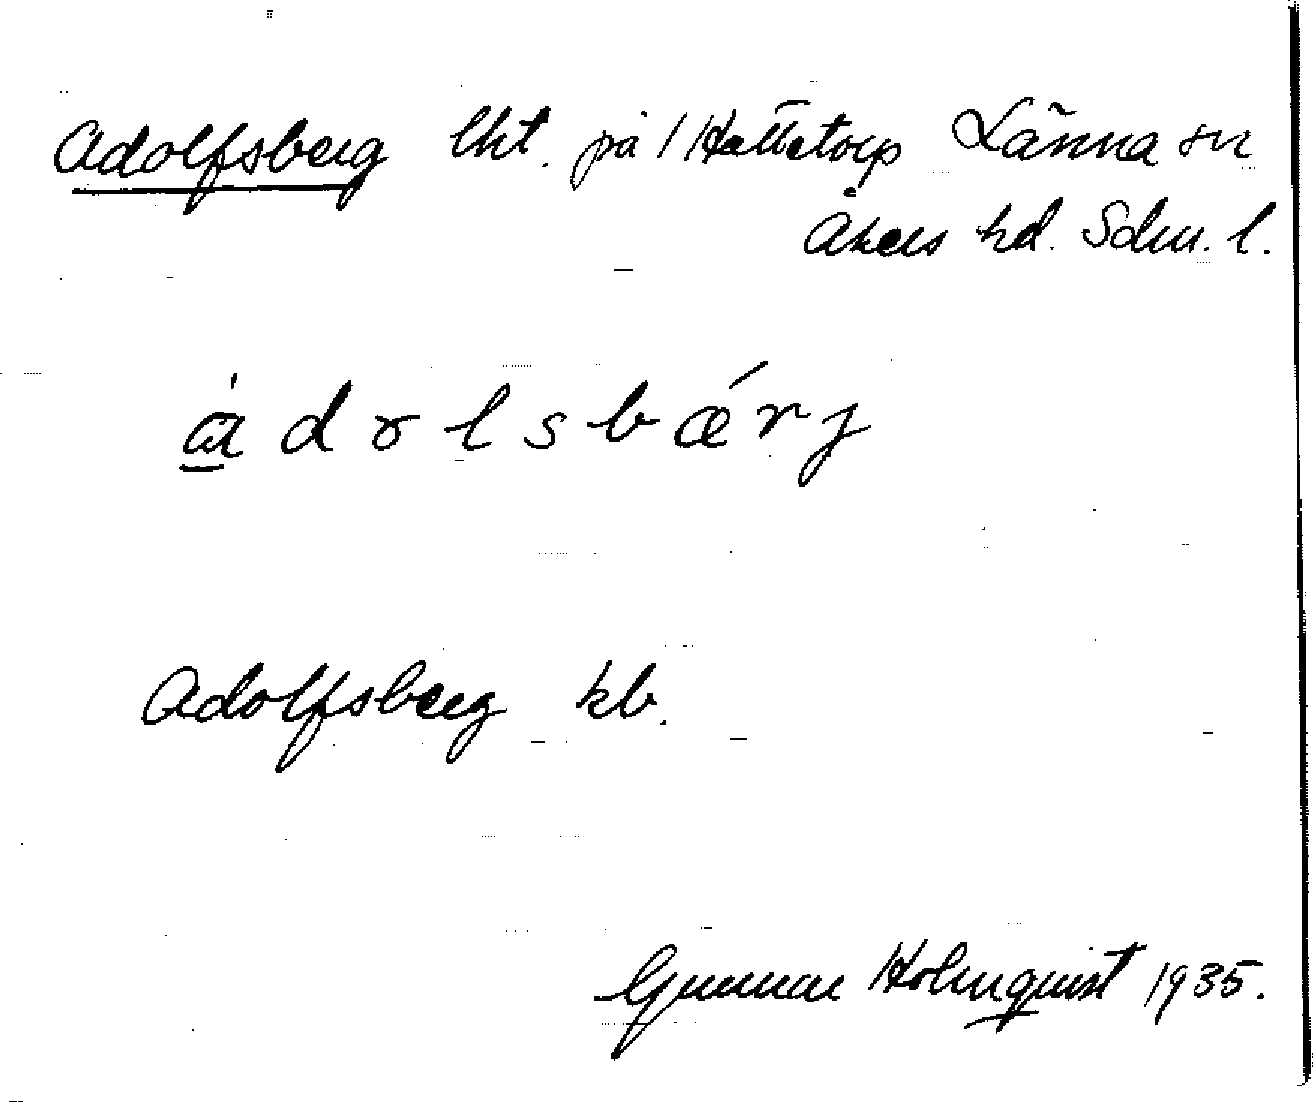 Adolfsberg lht. på 1 Hättetorp Länna sn
Åkers hd. Sdm. l.
a̱̍ dolsbǽrj
Adolfsberg kb.
Gunnar Holmquist 1935.